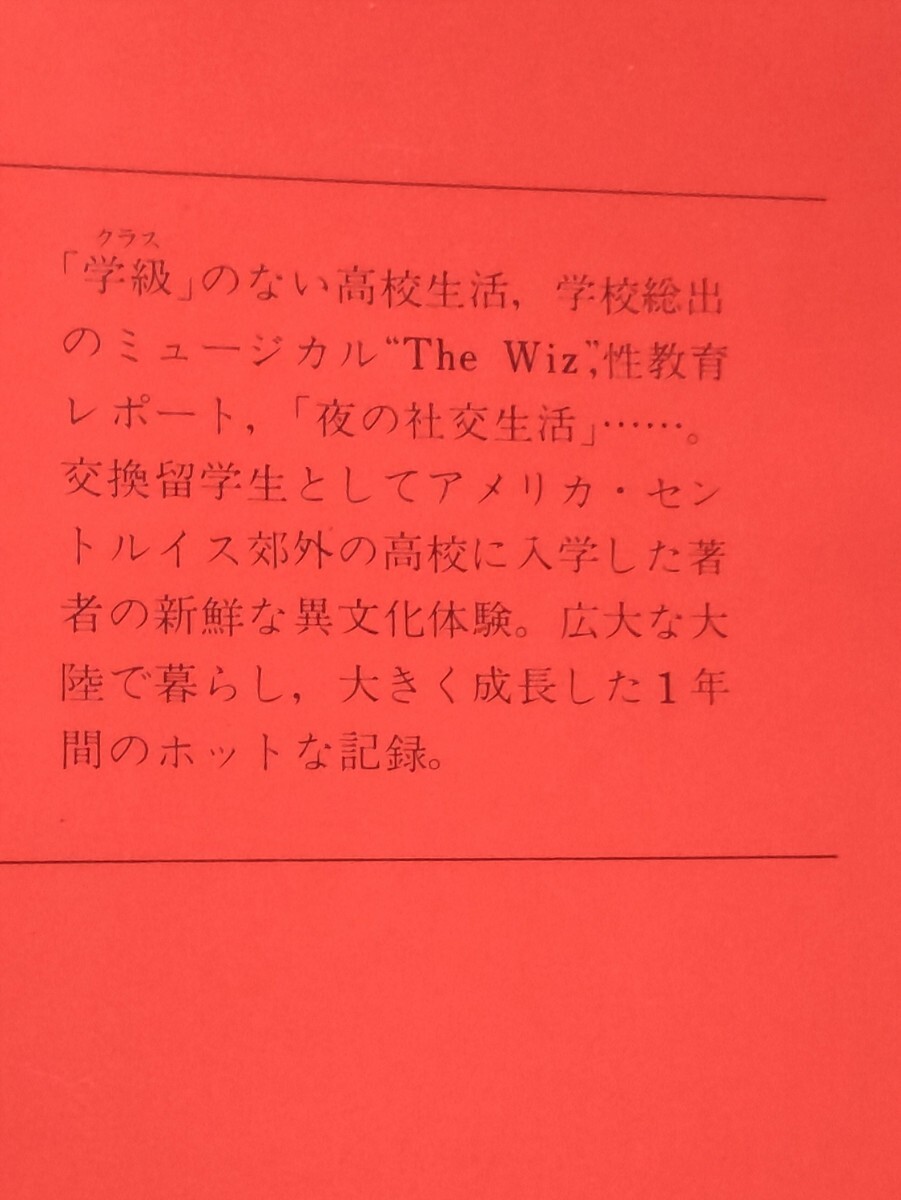 クラス
「学級」のない高校生活，学校総出
のミュージカル“The Wiz”，性教育
レポート，「夜の社交生活」……。
交換留学生としてアメリカ・セン
トルイス郊外の高校に入学した著
者の新鮮な異文化体験。広大な大
陸で暮らし，大きく成長した1年
間のホットな記録。